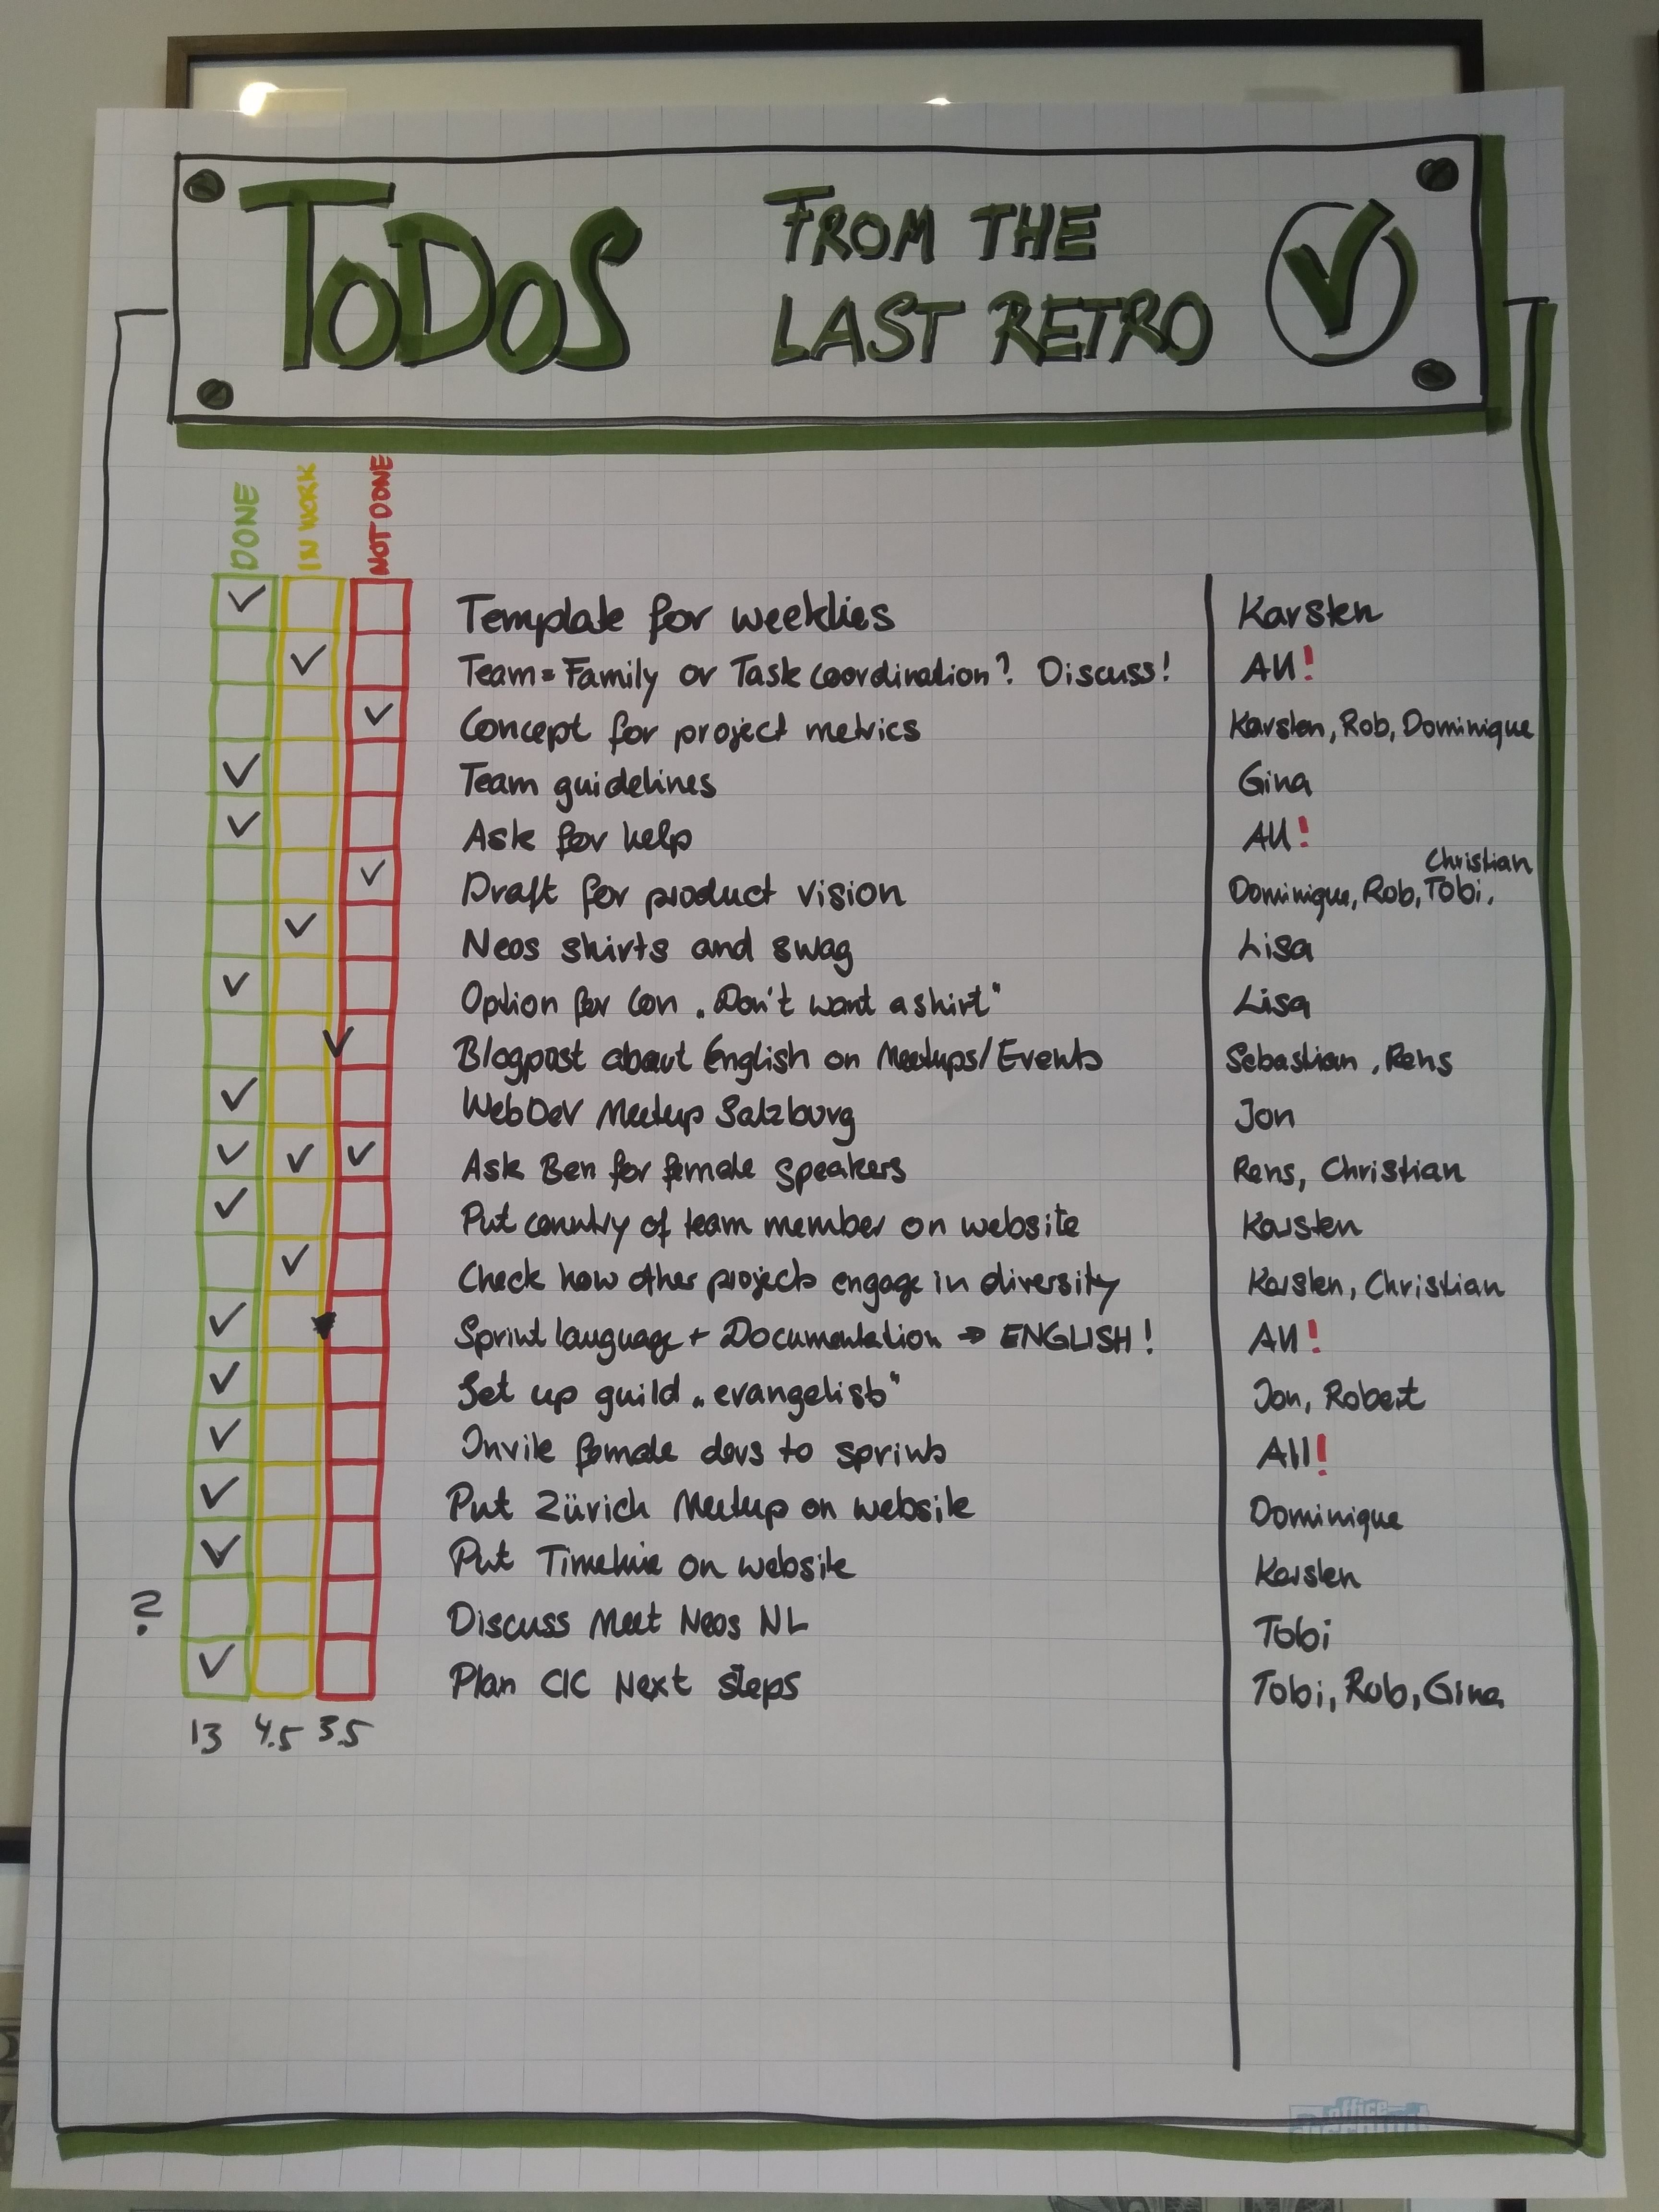 TODOS FROM THE
LAST RETRO
DONE IN WORK NOT DONE
Template for weeklies Karsten
Team = Family or Task coordination? Discuss! All!
Concept for project metrics Karsten, Rob, Dominique
Team guidelines Gina
Ask for help All!
Christian
Draft for product vision Dominique, Rob, Tobi,
Neos shirts and swag Lisa
Option for Con „Don't want a shirt" Lisa
Blogpost about English on Meetups/Events Sebastian, Rens
WebDev Meetup Salzburg Jon
Ask Ben for female speakers Rens, Christian
Put country of team member on website Karsten
Check how other projects engage in diversity Karsten, Christian
Sprint language + Documentation → ENGLISH! All!
Set up guild „evangelists" Jon, Robert
Invite female devs to sprints All!
Put Zürich Meetup on website Dominique
Put Timeline on website Karsten
? Discuss Meet Neos NL Tobi
Plan CIC Next steps Tobi, Rob, Gina
13 4.5 3.5
office